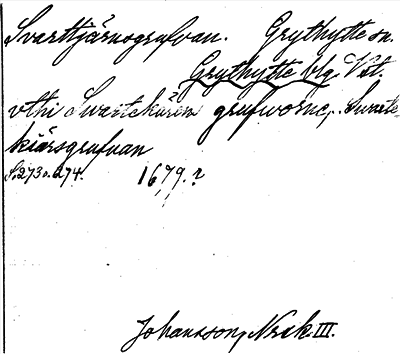 Svarttjärnsgrufvan. Grythytte sn.
Grythytte blg. Vstl.
vthi Swartekiärn grufworne, Swarte
kiärsgrufuan
S. 273 o. 274. 1679. ?
Johansson, Norak III.